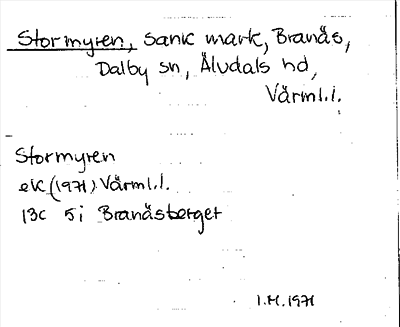 Stormyren, sank mark, Branäs,
Dalby sn, Älvdals hd,
Värml.l.
Stormyren
eK (1971) Värml.l.
13C 5i Branäsberget
I.H. 1971